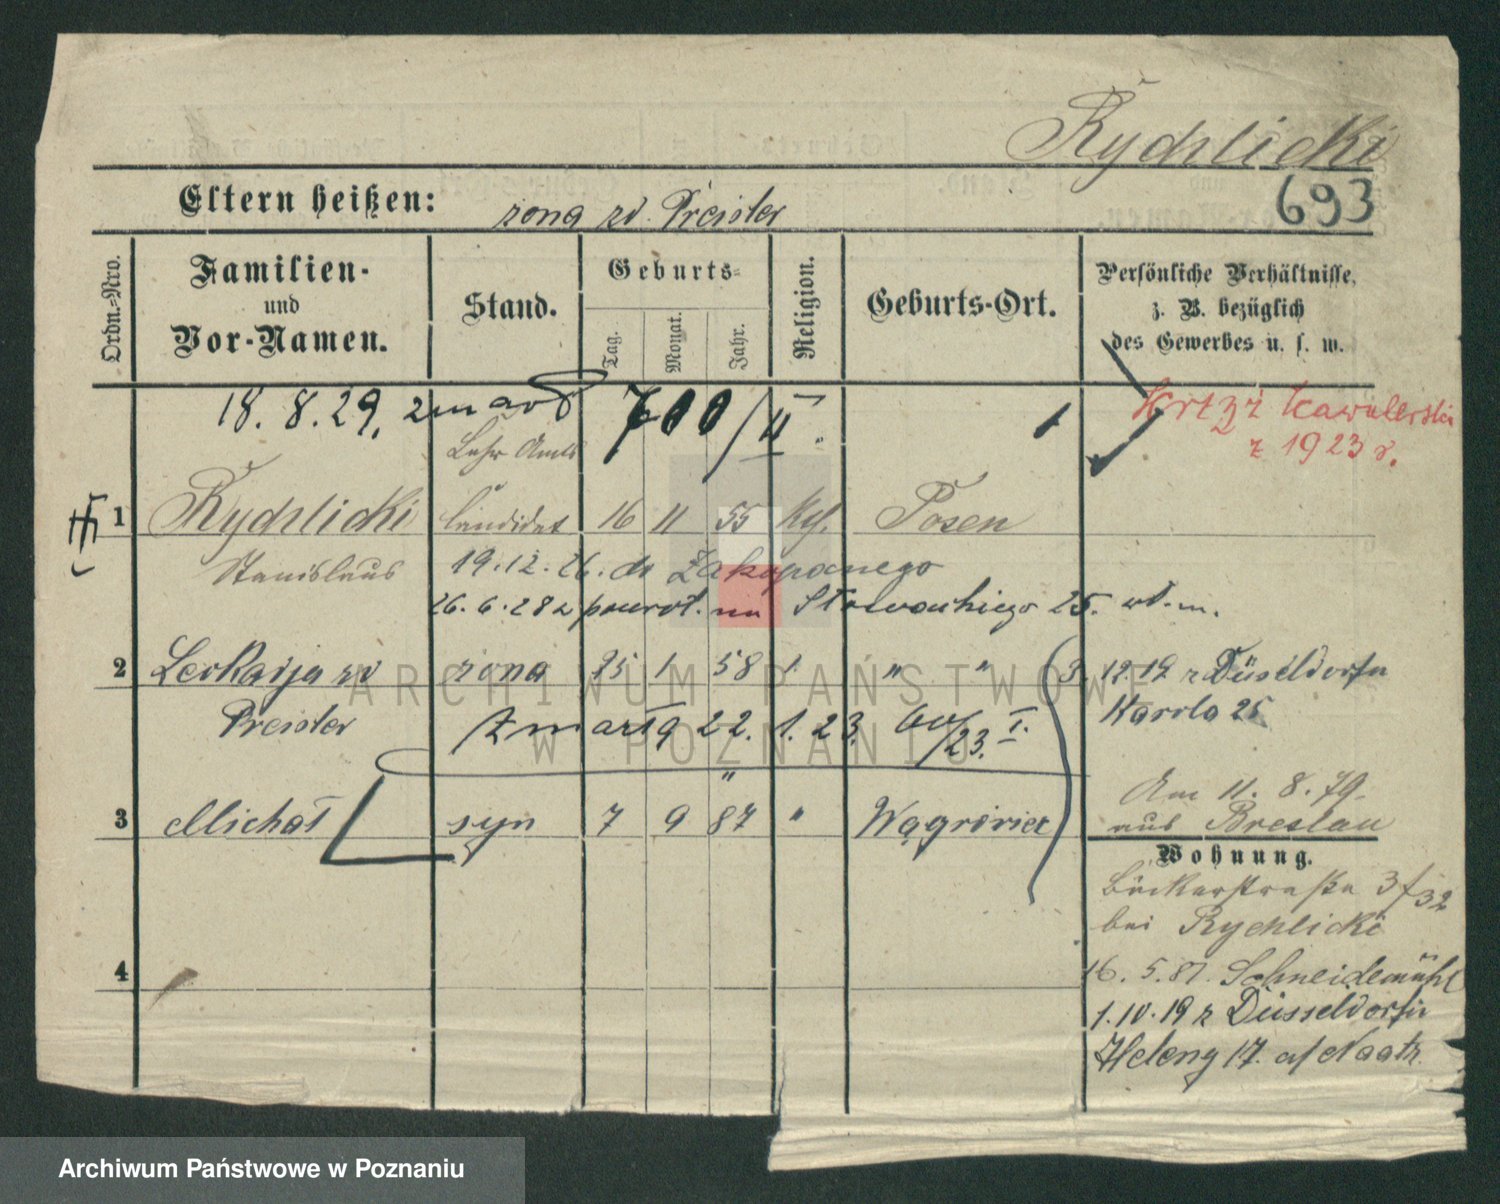 Rychlicki
Eltern heißen: żona zd. Preisler
693
Ordn.=Nro.
Familien-
und
Vor-Namen.
Stand.
Geburts=
Tag.
Monat.
Jahr.
Religion.
Geburts-Ort.
Persönliche Verhältnisse,
z. B. bezüglich
des Gewerbes u. s. w.
18. 8. 29. zmarł 700/II.
Krzyż kawalerski
z 1923 r.
Lehr Amts
1 Rychlicki Candidat 16 11 55 Kth. Posen
Stanislaus 19.12.26. do Zakopanego
26.6.28 z powrot. na Słowackiego 25. wł. m.
2 Leokadja zd żona 25 1 58 " "
3. 12.19 z Düsseldorfu
Preisler Zmarła 22. 1. 23. 60/23. I.
Karola 25
3 Michał syn 7 9 87 " Wągrowiec
Am 11. 8. 79.
aus Breslau
Wohnung.
Bäckerstraße
bei Rychlicki
4
16. 5. 81. Schneidemühl
1.10.19 z Düsseldorfu
Heleny 17.
ARCHIWUM PAŃSTWOWE
W POZNANIU
Archiwum Państwowe w Poznaniu